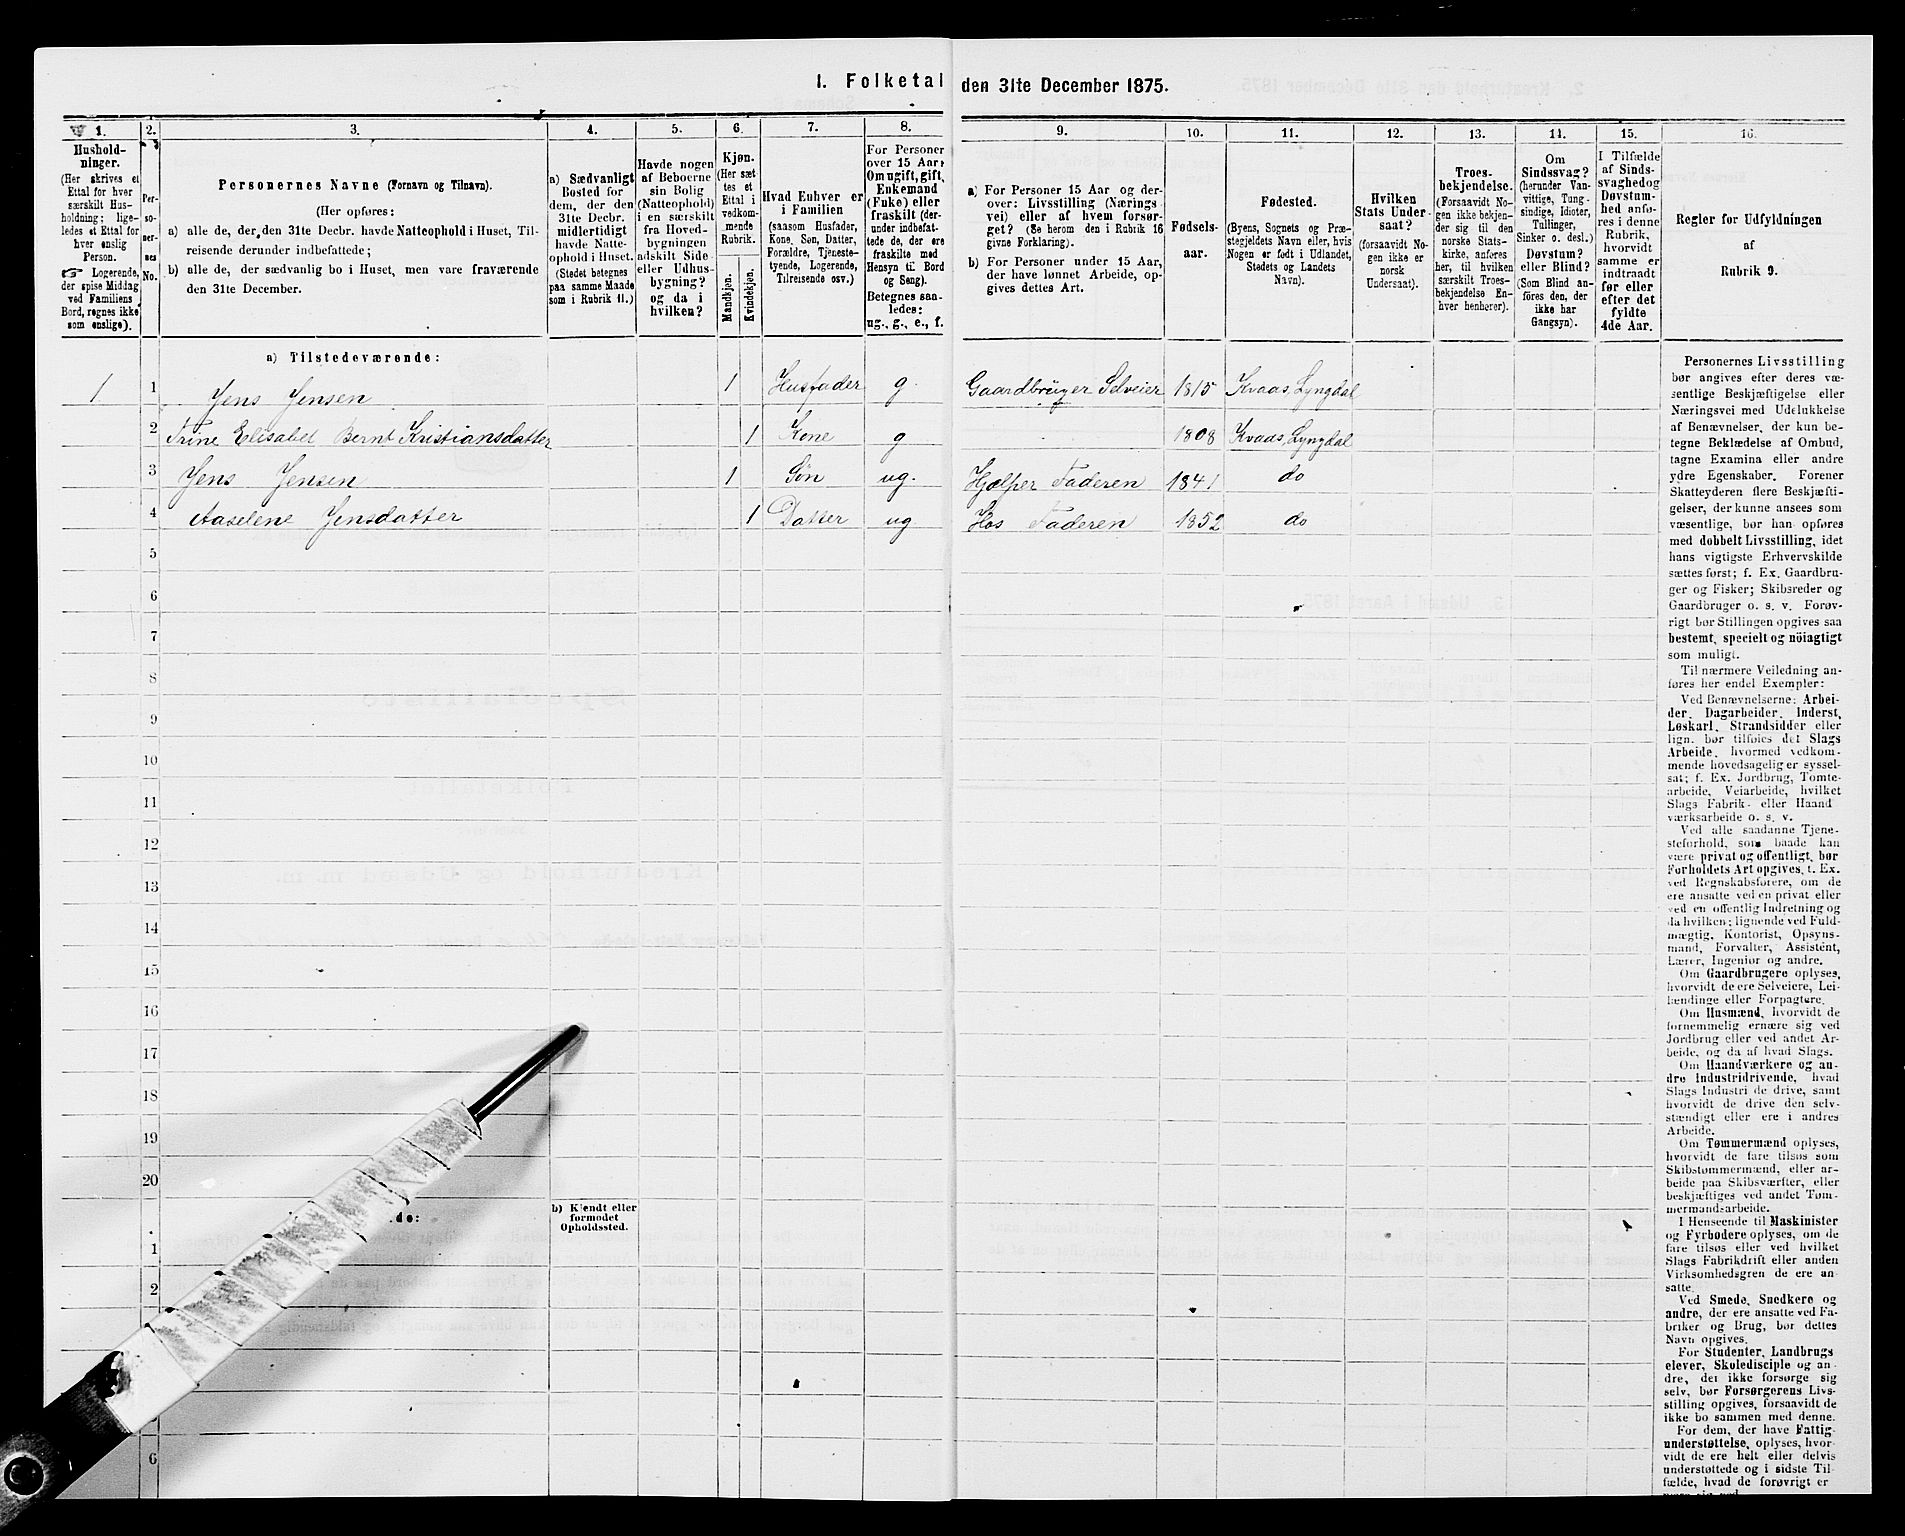 1. Folketal den 31te December 1875.
1. 2. 3. 4. 5. 6. 7. 8. 9. 10. 11. 12. 13. 14. 15. 16.
Hushold-
ninger.
(Her skrives et
Ettal for hver
særskilt Hus-
holdning; lige-
ledes et Ettal for
hver enslig
Person.
☞ Logerende,
der spise Middag
ved Familiens
Bord, regnes ikke
som enslige).
Per-
so-
ner-
nes
No.
Personernes Navne (Fornavn og Tilnavn).
(Her opføres:
a) alle de, der den 31te Decbr. havde Natteophold i Huset, Til-
reisende derunder indbefattede;
b) alle de, der sædvanlig bo i Huset, men vare fraværende
den 31te December.
a) Sædvanligt
Bosted for
dem, der den
31te Decbr.
midlertidigt
havde Natte-
ophold i Huset.
(Stedet betegnes
paa samme Maade
som i Rubrik 11.)
Havde nogen
af Beboerne
sin Bolig
(Natteophold)
i en særskilt
fra Hoved-
bygningen
adskilt Side-
eller Udhus-
bygning?
og da i
hvilken?
Kjøn.
(Her sæt
tes et
Ettal i
vedkom-
mende
Rubrik.
Mandkjøn.
Kvindekjøn.
Hvad Enhver er
i Familien
(saasom Husfader,
Kone, Søn, Datter,
Forældre, Tjeneste-
tyende, Logerende,
Tilreisende osv.)
For Personer
over 15 Aar:
Om ugift, gift,
Enkemand
(Enke) eller
fraskilt (der-
under indbefat-
tede de, der ere
fraskilte med
Hensyn til Bord
og Seng).
Betegnes saa-
ledes:
ug., g., e., f.
a) For Personer 15 Aar og der-
over: Livsstilling (Nærings
vei) eller af hvem forsør-
get? (Se herom den i Rubrik 16
givne Forklaring).
b) For Personer under 15 Aar,
der have lønnet Arbeide, op-
gives dettes Art.
Fødsels-
aar.
Fødested.
(Byens, Sognets og Præ-
stegjeldets Navn eller, hvis
Nogen er født i Udlandet,
Stedets og Landets
Navn).
Hvilken
Stats Under-
saat?
(forsaavidt No-
gen ikke er
norsk
Undersaat).
Troes-
bekjendelse.
(Forsaavidt No-
gen ikke bekjen-
der sig til den
norske Stats-
kirke, anføres
her, til hvilken
særskilt Troes-
bekjendelse En-
hver henhører).
Om
Sindssvag?
(herunder Van-
vittige, Tung-
sindige, Idioter,
Tullinger,
Sinker o. desl.)
Døvstum?
eller Blind?
(Som Blind an-
føres den, der
ikke har
Gangsyn).
I Tilfælde
af Sinds-
svaghed og
Døvstum-
hed anfø-
res i denne
Rubrik,
hvorvidt
samme er
indtraadt
før eller
efter det
fyldte
4de Aar.
Regler for Udfyldningen
af
Rubrik 9.
a) Tilstedeværende:
1 1 Jens Jensen 1 Husfader g. Gaardbruger Selveier 1815 Kvaas, Lyngdal
2 Trine Elisabet Bernt Kristiansdatter 1 Kone g 1808 Kvaas, Lyngdal
3 Jens Jensen 1 Søn ug. Hjælper Faderen 1841 do
4 Aaselene Jensdatter 1 Datter ug Hos Faderen 1852 do
5
6
7
8
9
10
11
12
13
14
15
16
17
18
19
20
de:
b) Kjendt eller
formodet
Opholdssted.
1
2
6
Personernes Livsstilling
bør angives efter deres væ-
sentlige Beskjæftigelse eller
Næringsvei med Udelukkelse
af Benævnelser, der kun be-
tegne Beklædelse af Ombud,
tagne Examina eller andre
ydre Egenskaber. Forener
Skatteyderen flere Beskjæfti-
gelser, der kunne ansees som
væsentlige, bør han opføres
med dobbelt Livsstilling, idet
hans vigtigste Erhvervskilde
sættes først; f. Ex. Gaardbru-
ger og Fisker; Skibsreder og
Gaardbruger o. s. v. Forøv-
rigt bør Stillingen opgives saa
bestemt, specielt og nöiagtigt
som muligt.
Til nærmere Veiledning an-
føres her endel Exempler:
Ved Benævnelserne: Arbei-
der, Dagarbeider, Inderst,
Løskarl, Strandsidder eller
lign. bør tilføies det Slags
Arbeide, hvormed vedkom-
mende hovedsagelig er syssel-
sat; f. Ex. Jordbrug, Tomte-
arbeide, Veiarbeide, hvilket
Slags Fabrik- eller Haand
værksarbeide o. s. v.
Ved alle saadanne Tjene-
steforhold, som baade kan
være privat og offentligt, bør
Forholdets Art opgives, t. Ex.
ved Regnskabsførere, om de
ere ansatte ved en privat eller
ved en offentlig Indretning og
da hvilken; lignende ved Fuld-
mægtig, Kontorist, Opsyns-
mand, Forvalter, Assistent,
Lærer, Ingeniør og andre.
Om Gaardbrugere oplyses,
hvorvidt de ere Selveiere, Lei-
lændinge eller Forpagtere.
Om Husmænd, hvorvidt de
fornemmelig ernære sig ved
Jordbrug eller ved andet Ar-
beide, og da af hvad Slags.
Om Haandværkere og an-
dre Industridrivende, hvad
Slags Industri de drive, samt
hvorvidt de drive den selv-
stændigt eller ere i andres
Arbeide.
Om Tømmermænd oplyses,
hvorvidt de fare tilsøs som
Skibstømmermænd, eller ar-
beide paa Skibsværfter, eller
beskjæftiges ved andet Tøm-
mermandsarbeide.
I Henseende til Maskinister
og Fyrbødere oplyses, om de
fare tilsøs eller ved hvilket
Slags Fabrikdrift eller anden
Virksomhedsgren de ere an-
satte.
Ved Smede, Snedkere og
andre, der ere ansatte ved Fa-
briker og Brug, bør dettes
Navn opgives.
For Studenter, Landbrugs
elever, Skoledisciple og an-
dre, der ikke forsørge sig
selv, bør Forsørgerens Livs-
stilling opgives, forsaavidt de
ikke bo sammen med denne.
For dem, der have Fattig-
understøttelse, oplyses, hvor-
vidt de ere helt eller delvis
understøttede og i sidste Til-
fælde, hvad de forøvrigt er